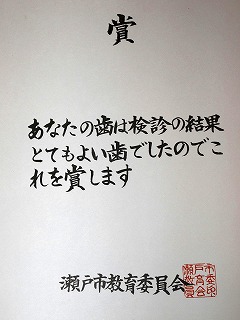 賞
あなたの歯は検診の結果
とてもよい歯でしたのでこ
れを賞します
瀬戸市教育委員会